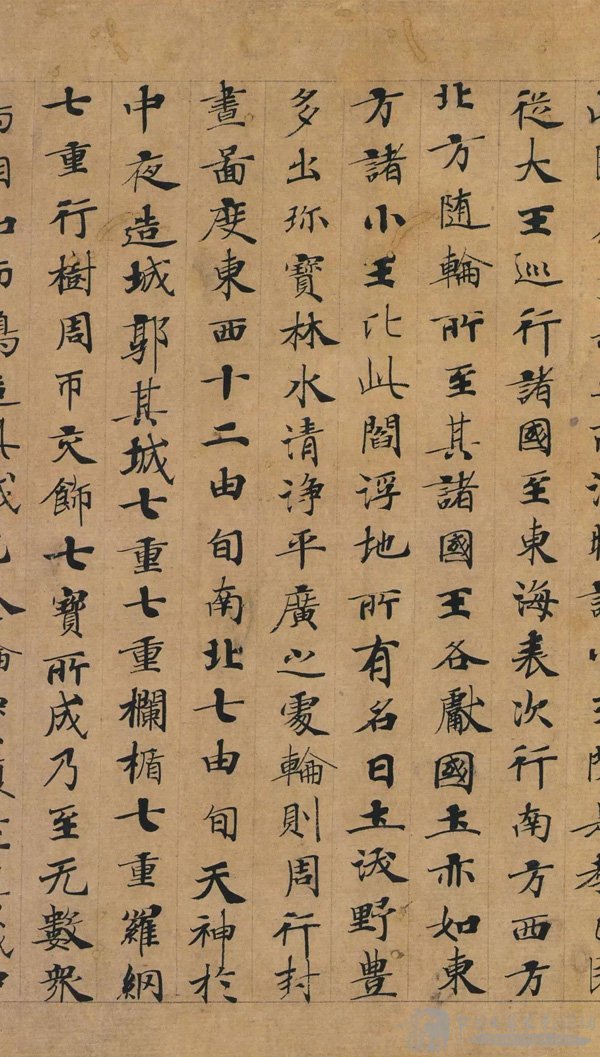 從大王巡行諸國至東海表次行南方西方
北方随輪所至其諸國王各獻國土亦如東
方諸小王比此閻浮地所有名曰土沃野豊
多出珎寳林水清浄平廣之處輪則周行封
畫啚度東西十二由旬南北七由旬天神於
中夜造城郭其城七重七重欄楯七重羅網
七重行樹周帀交飾七寶所成乃至无數衆